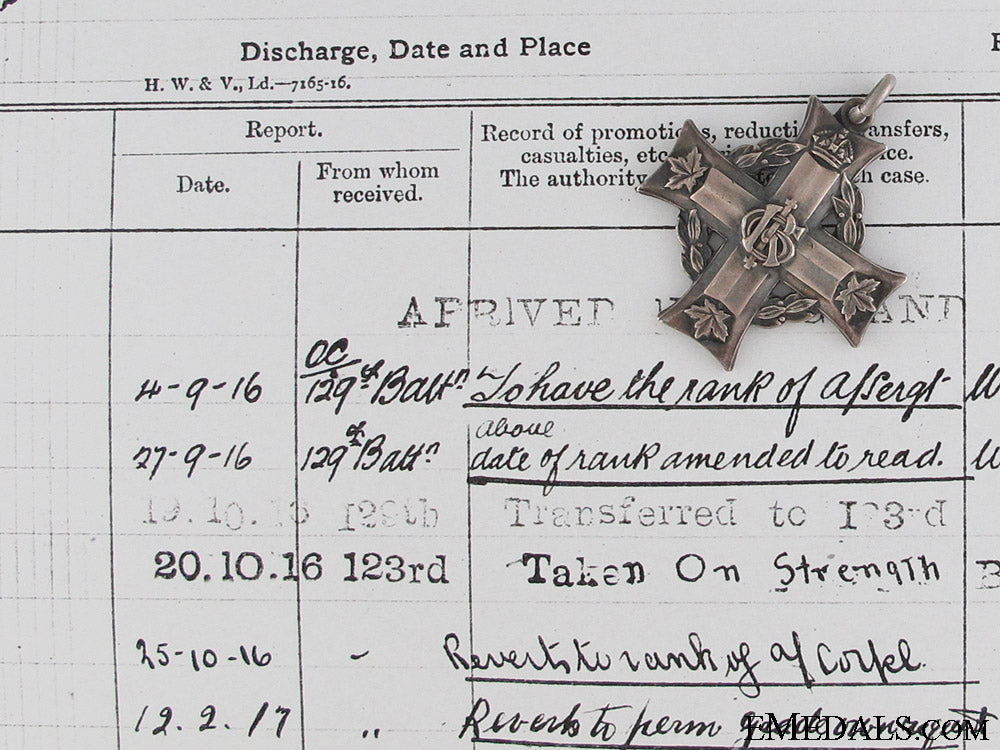 Discharge, Date and Place
H. W. & V., Ld.—7165-16.
Report.
Date.
From whom
received.
Record of promotions, reductions, transfers,
casualties, etc.
The authority each case.
ARRIVED
4-9-16 OC 129th Battn To have the rank of A/Sergt
27-9-16 129th Battn above date of rank amended to read.
19.10.16 129th Transferred to 123rd
20.10.16 123rd Taken On Strength
25-10-16 - Reverts to rank of a/Corpl.
12.2.17 " Reverts to perm grade
EMEDALS.COM